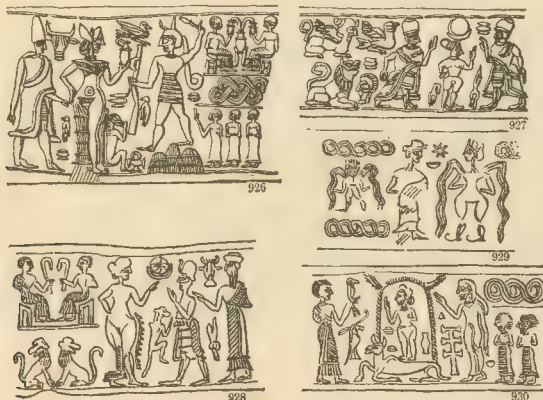 926
927
929
928
930